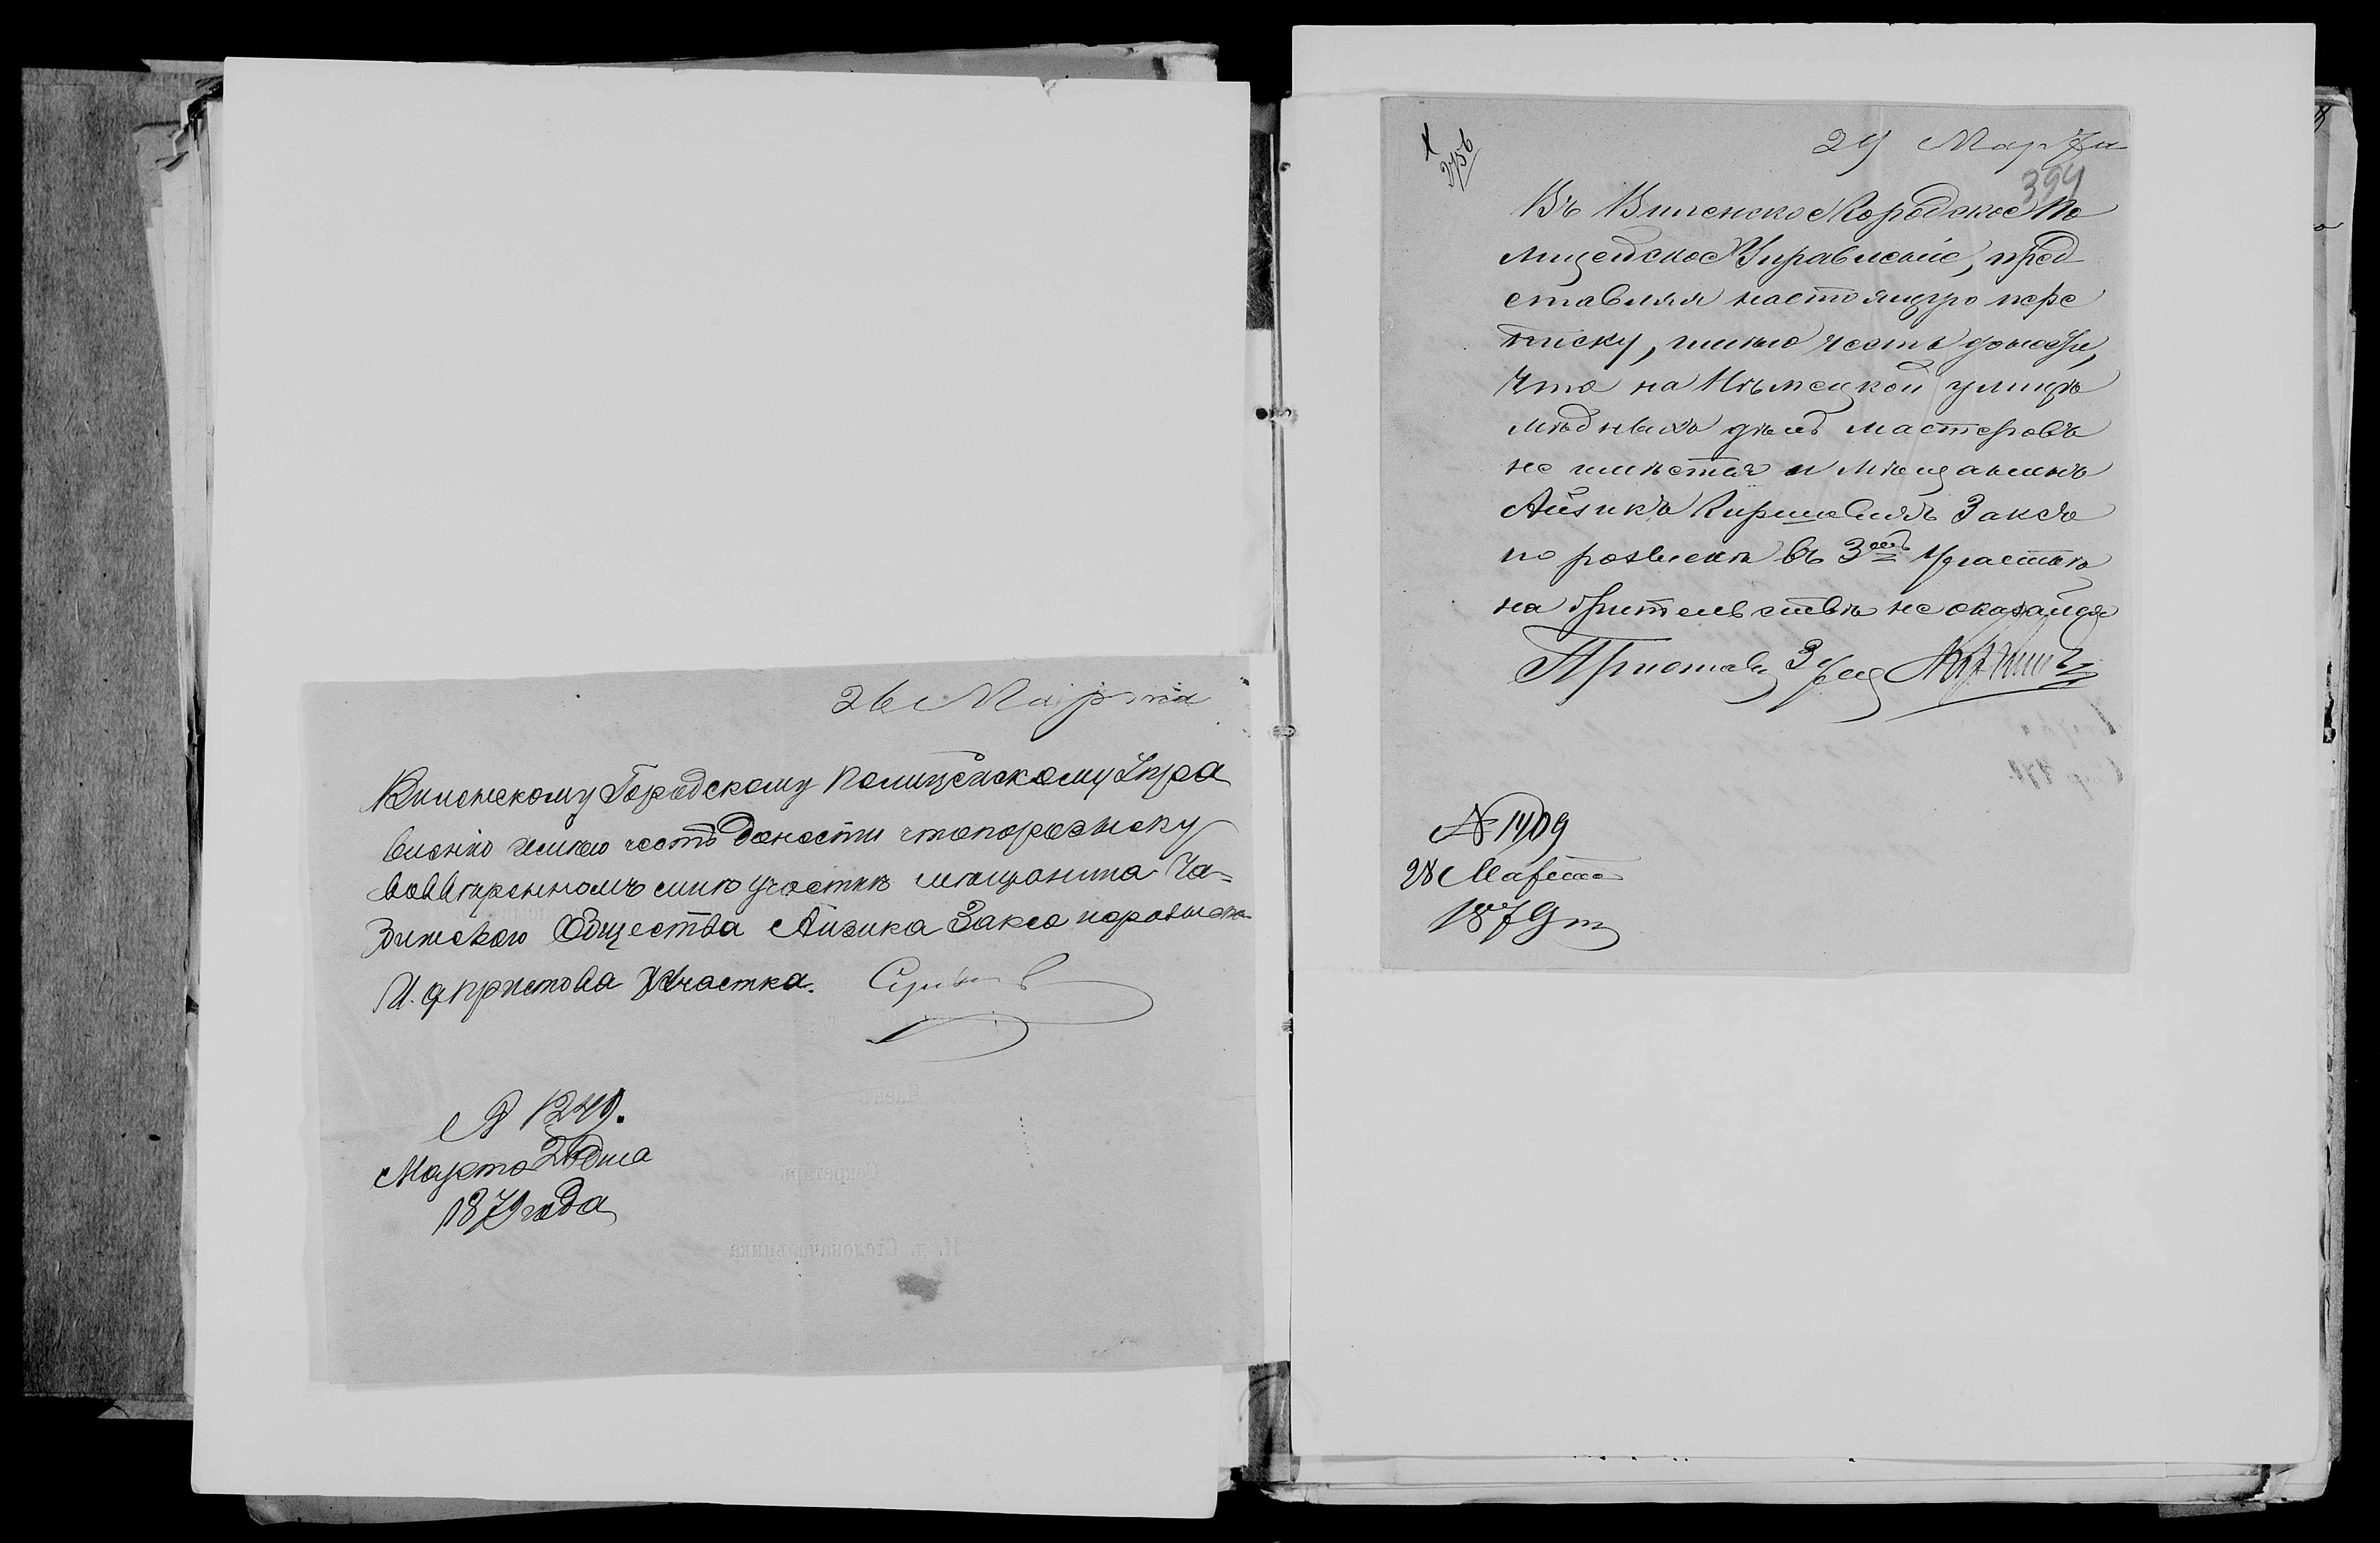 26 Марта
Виленскому Городскому Полицейскому Упра
вленію имѣю честь донести что по розыску
во ввѣренномъ мнѣ участкѣ мѣщанина
Общества Айзика Закса
И. д. пристава Участка.
№ 1249.
Марта 26 дня
1879 года
Членъ
Секретарь
И. д. Столоначальника
2756
29 Марта
394
Въ Виленское Городское По
лицейское Управленіе, пред
ставляя настоящую пере
писку, имѣю честь донести,
что на Нѣмецкой улицѣ
мѣдныхъ дѣлъ мастеровъ
не имѣется и мѣщанинъ
Айзикъ Заксъ
по розыскѣ въ 3 участкѣ
на жительствѣ не оказался
Приставъ 3 уч
№ 1409
28 Марта
1879 г